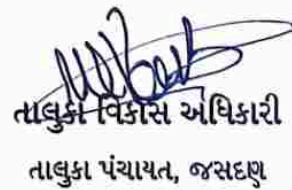 તાલુકા વિકાસ અધિકારી
તાલુકા પંચાયત, જસદણ